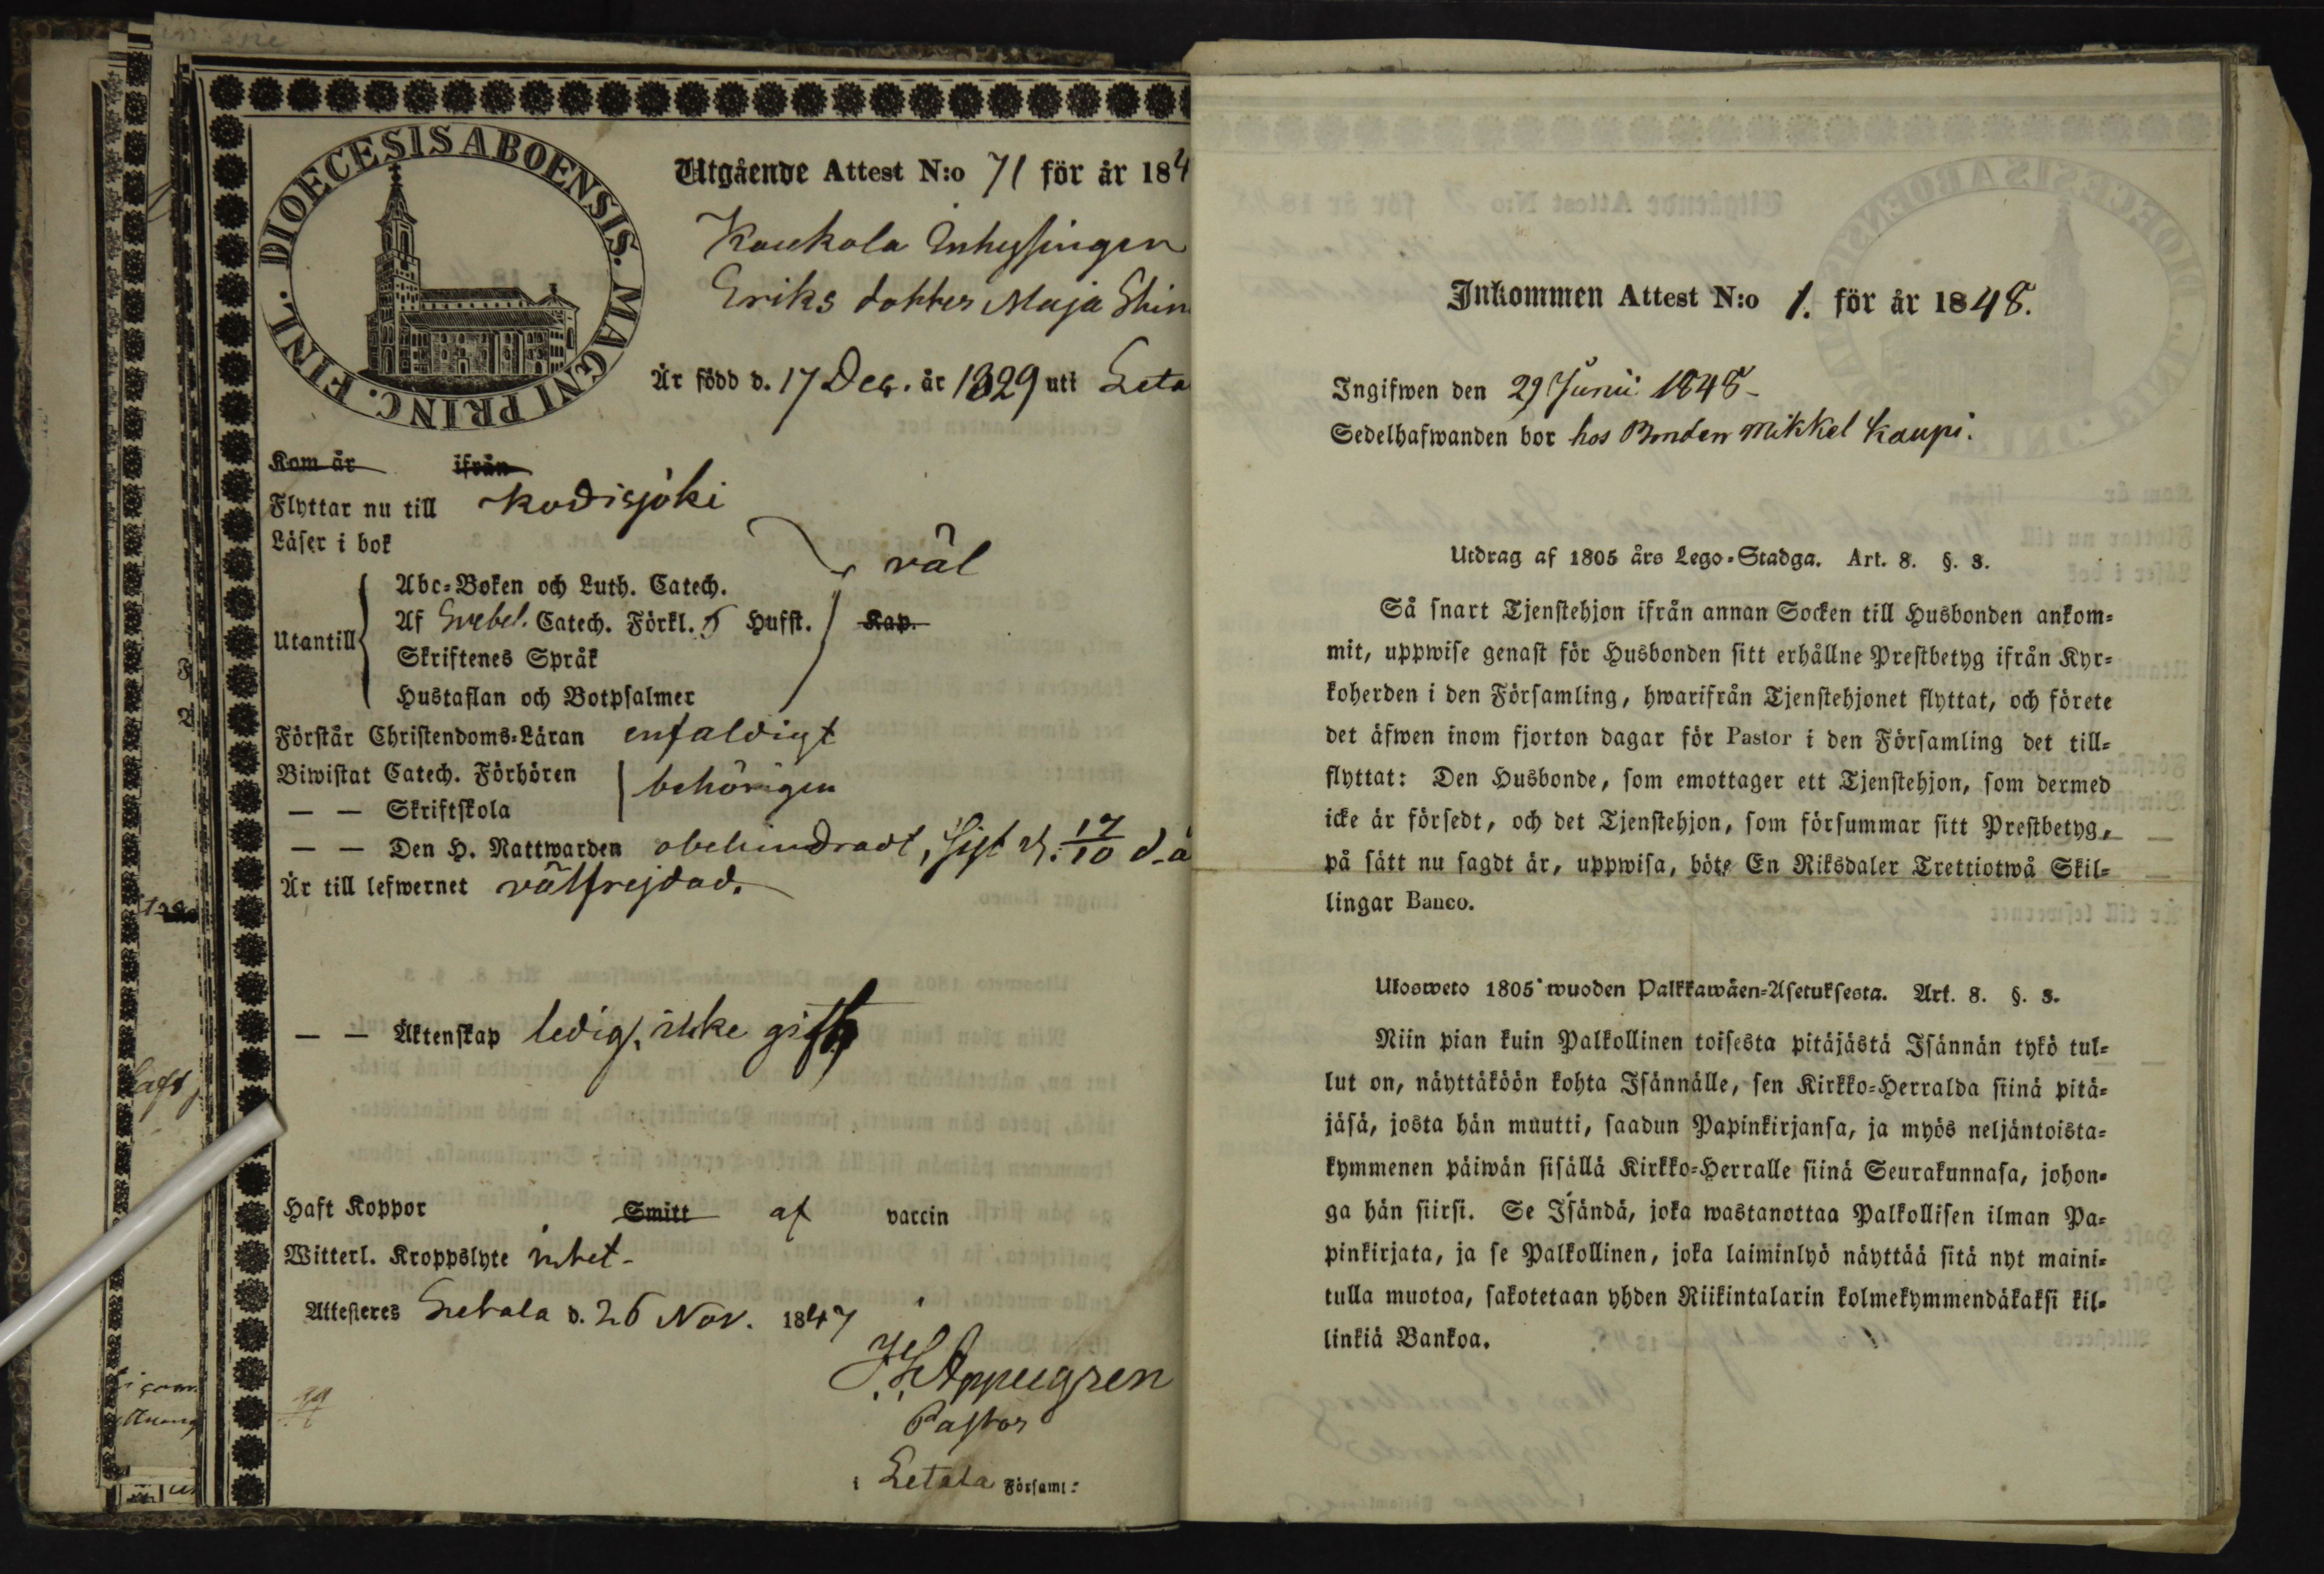 DIOECESIS ABOENSIS. MAGNI PRINC. FINL.
Utgående Attest N:o 71 för år 184
Kaukola Inhysingen
Eriks dotter Maja Stin
Är född d. 17 Dec. år 1829 uti Leta
Kom år ifrån
Flyttar nu till Kodisjoki
Läser i bok
väl
Abc-Boken och Luth. Catech.
Utantill
Af Svebel. Catech. Förkl. 5 Hufst. Kap.
Skriftenes Språk
Hustaflan och Botpsalmer
Förstår Christendoms-Läran enfaldigt
Biwistat Catech. Förhören
behörigen
— — Skriftskola
— — Den H. Nattwarden obehindradt, sist d. 17/10 d. å
Är till lefwernet välfrejdad.
— — Äktenskap ledig, icke gift
Haft Koppor Smitt af vaccin
Witterl. Kroppslyte intet -
Attesteres Letala d. 26 Nov. 1847
Appelgren
Pastor
i Letala Församl:
Inkommen Attest N:o 1. för år 1848.
Ingifwen den 29 Junii 1848 -
Sedelhafwanden bor hos Bonden Mikkel Kaupi.
Utdrag af 1805 års Lego-Stadga. Art. 8. §. 3.
Så snart Tjenstehjon ifrån annan Socken till Husbonden ankom-
mit, uppwise genast för Husbonden sitt erhållne Prestbetyg ifrån Kyr-
koherden i den Församling, hwarifrån Tjenstehjonet flyttat, och förete
det äfwen inom fjorton dagar för Pastor i den Församling det till-
flyttat: Den Husbonde, som emottager ett Tjenstehjon, som dermed
icke är försedt, och det Tjenstehjon, som försummar sitt Prestbetyg,
på sätt nu sagdt är, uppwisa, böte En Riksdaler Trettiotwå Skil-
lingar Banco.
Ulosweto 1805 wuoden Palkkawäen-Asetuksesta. Art. 8. §. 3.
Niin pian kuin Palkollinen toisesta pitäjästä Isännän tykö tul-
lut on, näyttäköön kohta Isännälle, sen Kirkko-Herralda siinä pitä-
jäsä, josta hän muutti, saadun Papinkirjansa, ja myös neljäntoista-
kymmenen päiwän sisällä Kirkko-Herralle siinä Seurakunnasa, johon-
ga hän siirsi. Se Isändä, joka wastanottaa Palkollisen ilman Pa-
pinkirjata, ja se Palkollinen, joka laiminlyö näyttää sitä nyt maini-
tulla muotoa, sakotetaan yhden Riikintalarin kolmekymmendäkaksi kil-
linkiä Bankoa.